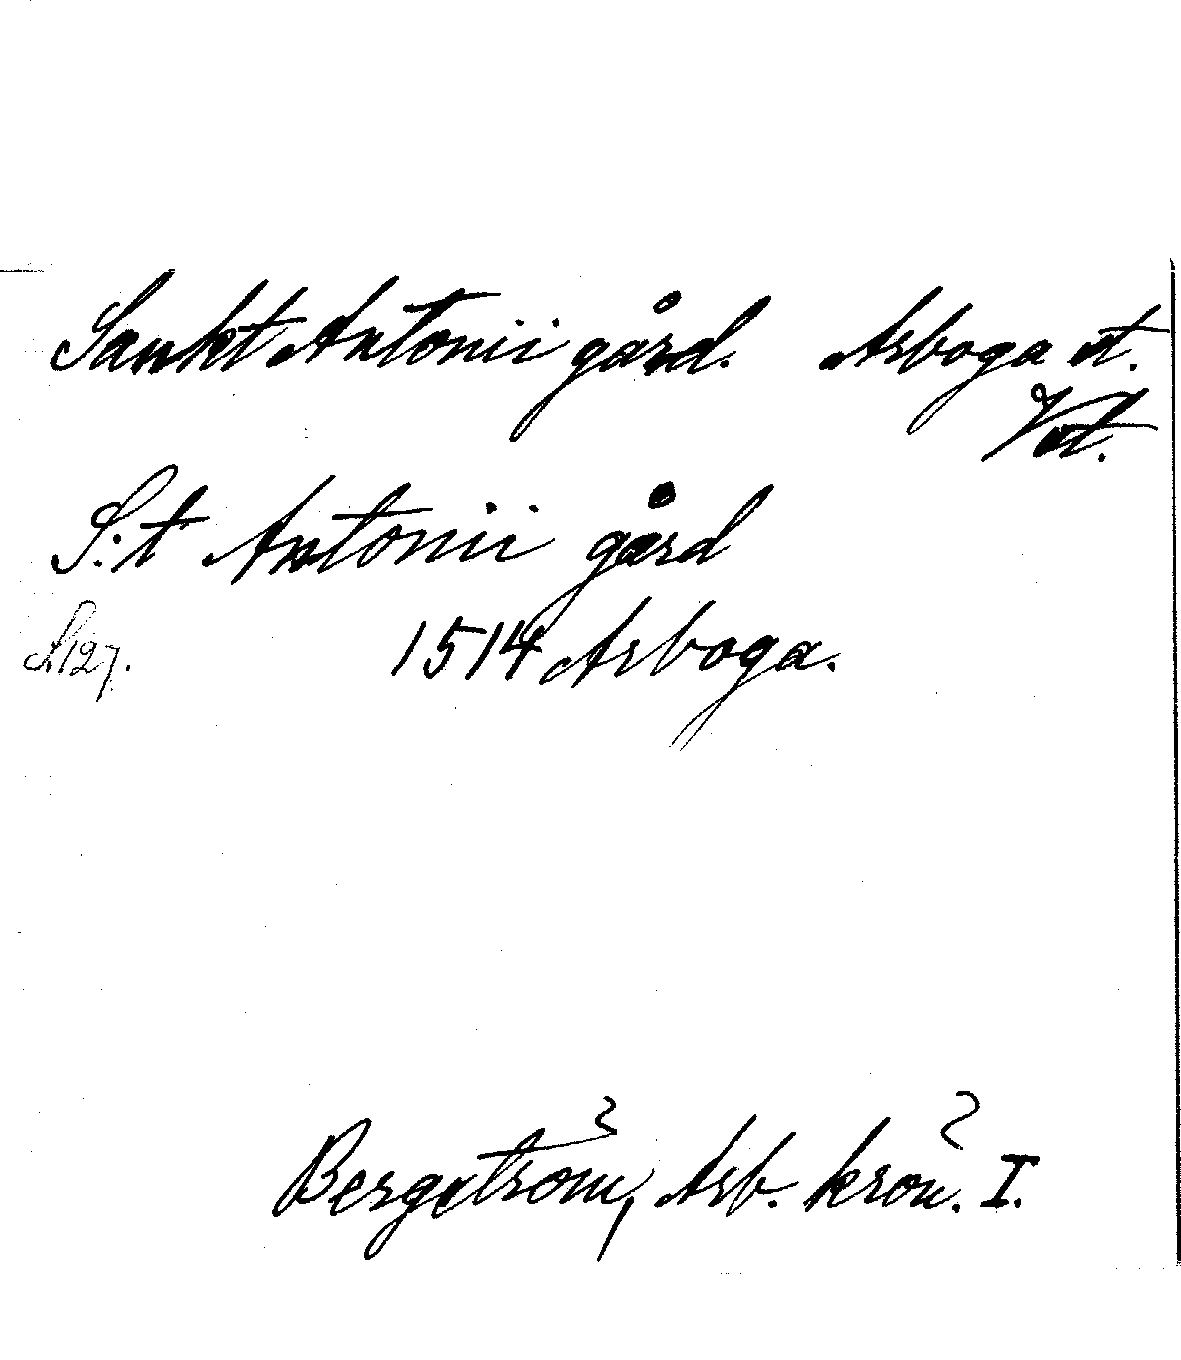 Sankt Antonii gård. Arboga st.
Vstl.
S:t Antonii gård
S.127. 1514 Arboga.
Bergström, Arb. krön. I.